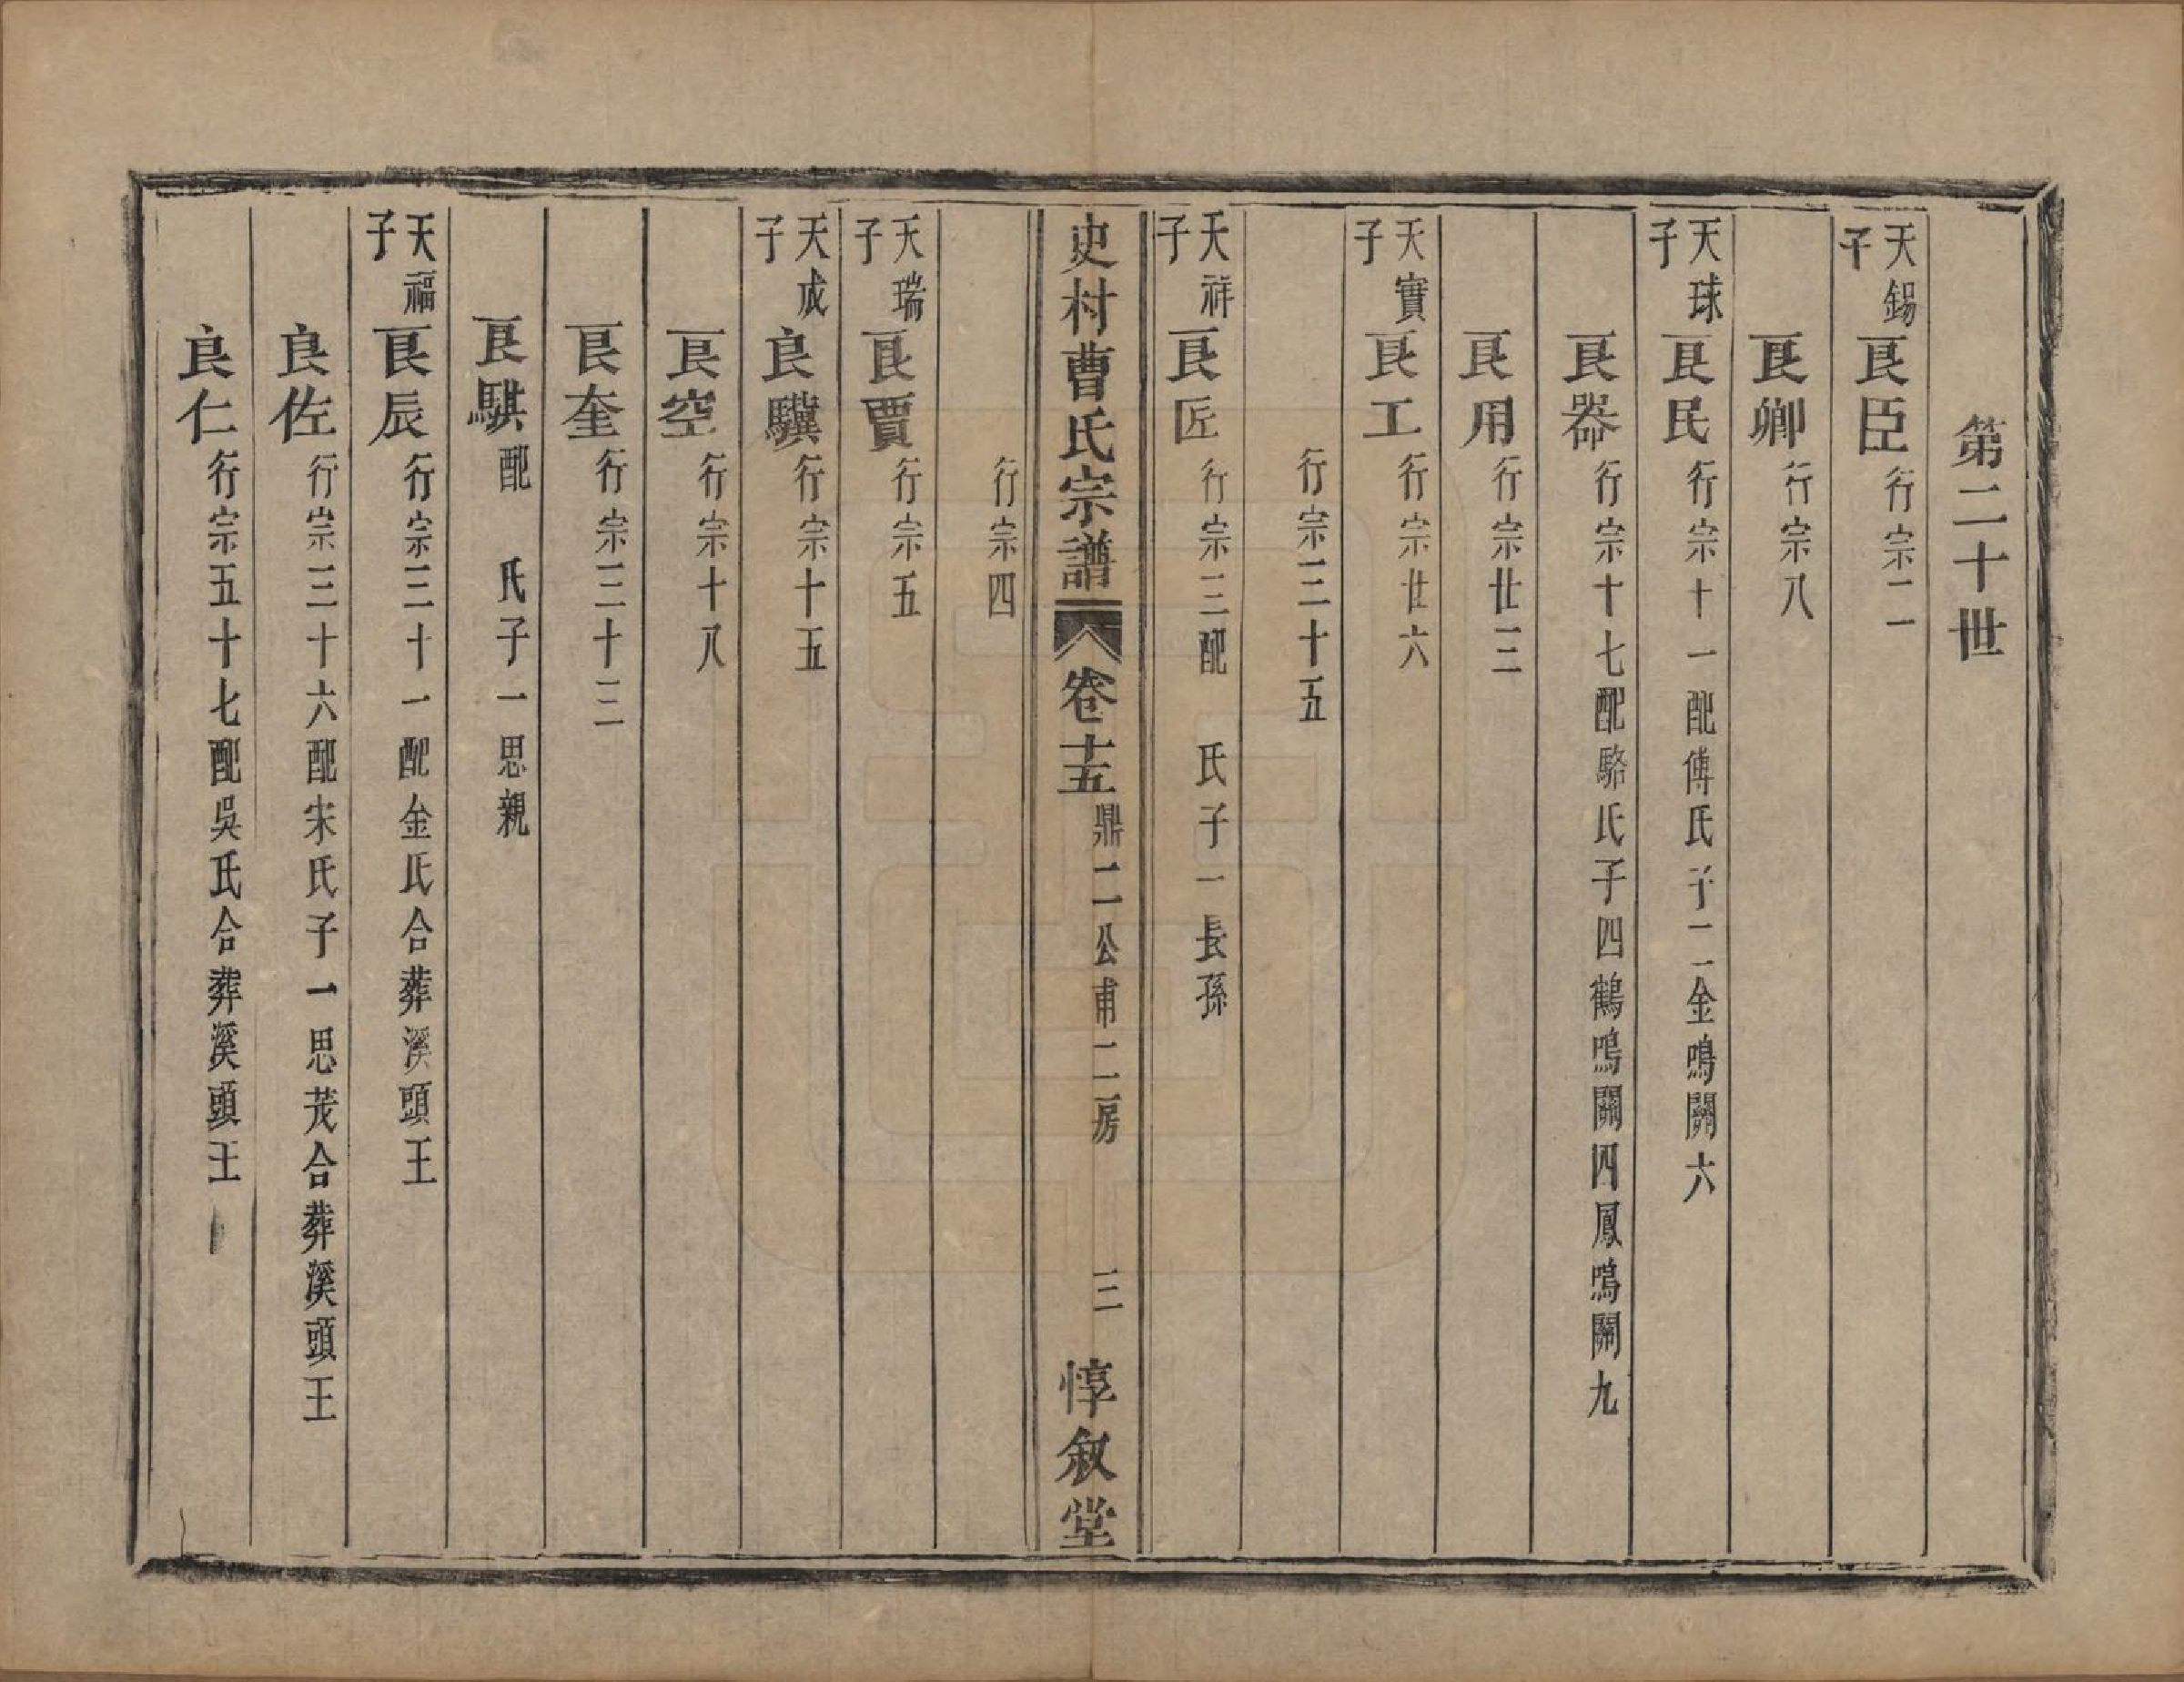 第二十世
天錫子 良臣 行宗二
良卿 行宗八
天球子 良民 行宗十一配傅氏子二金鳴關六
良器 行宗十七配駱氏子四鶴鳴關四鳳鳴關九
良用 行宗廿三
天實子 良工 行宗廿六
行宗三十五
天祥子 良匠 行宗三配 氏子一長孫
史村曹氏宗譜 卷十五 鼎二公甫二房 三 惇敘堂
行宗四
天瑞子 良賈 行宗五
天成子 良驥 行宗十五
良空 行宗十八
良奎 行宗三十三
良騏 配 氏子一思親
天福子 良辰 行宗三十一配金氏合葬溪頭王
良佐 行宗三十六配宋氏子一思茂合葬溪頭王
良仁 行宗五十七配吳氏合葬溪頭王